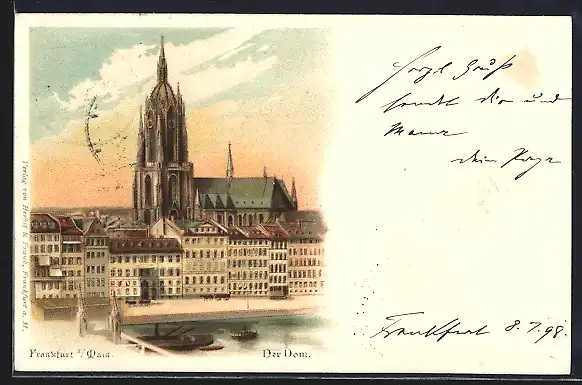 Herzl. Gruß
sendet dir und
Mama
dein
Frankfurt 8.7.98.
Frankfurt a/ Main.
Der Dom.
Verlag von Frankfurt a. M.